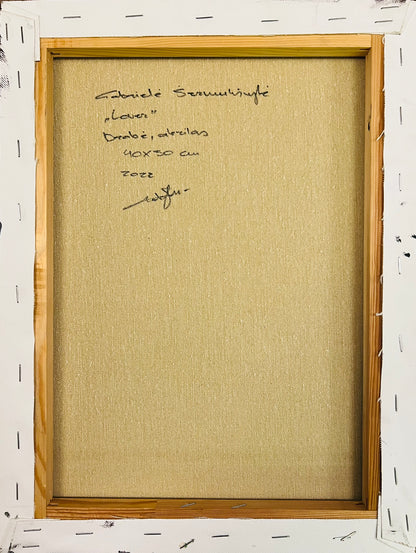 Gabrielė Šermukšnytė
„Lover”
Drobė, akrilas
40x50 cm
2022